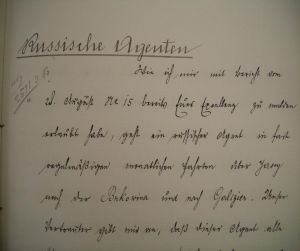 Russische Agenten
Wie ich mir mit Bericht vom
2. August No 15 bereits Euer Exzellenz zu melden
erlaubt habe, geht ein russischer Agent in fast
regelmäßigen monatlichen Fahrten über Jassy
nach der Bukowina und nach Galizien. Unser
Vertrauter gibt mir an, daß dieser Agent alle